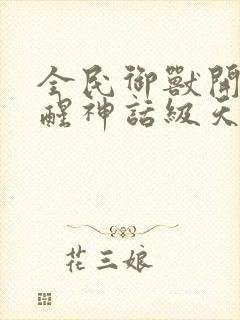 全民御獸開
醒神話級天
花三娘